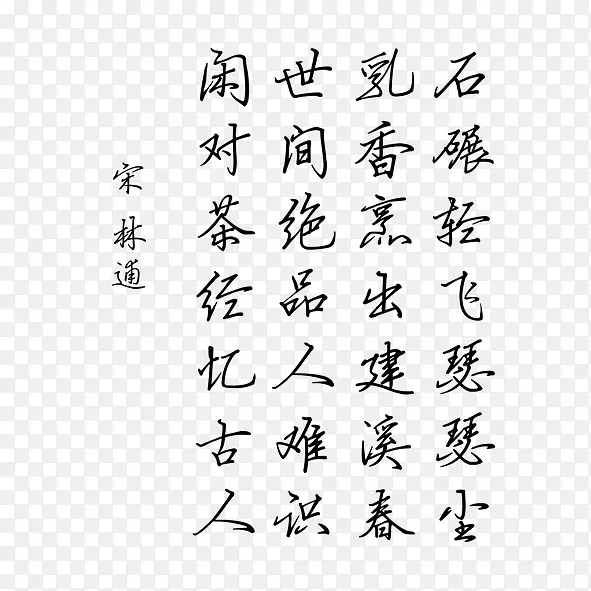 石碾轻飞瑟瑟尘
乳香烹出建溪春
世间绝品人难识
闲对茶经忆古人
宋林逋